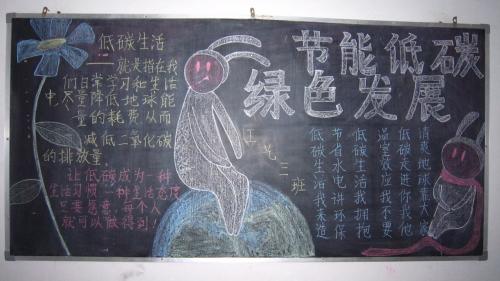 低碳生活
——就是指在我
们日常学习和生活
中尽量降低地球能
量的耗费从而
减低二氧化碳
的排放量。
让低碳成为一种
生活习惯一种生活态度
只要愿意每个人
就可以做得到
节能低碳
绿色发展
三班
请爱地球靠大家
低碳走进你我他
温室效应我不要
低碳生活我拥抱
节省水电讲环保
低碳生活我来造